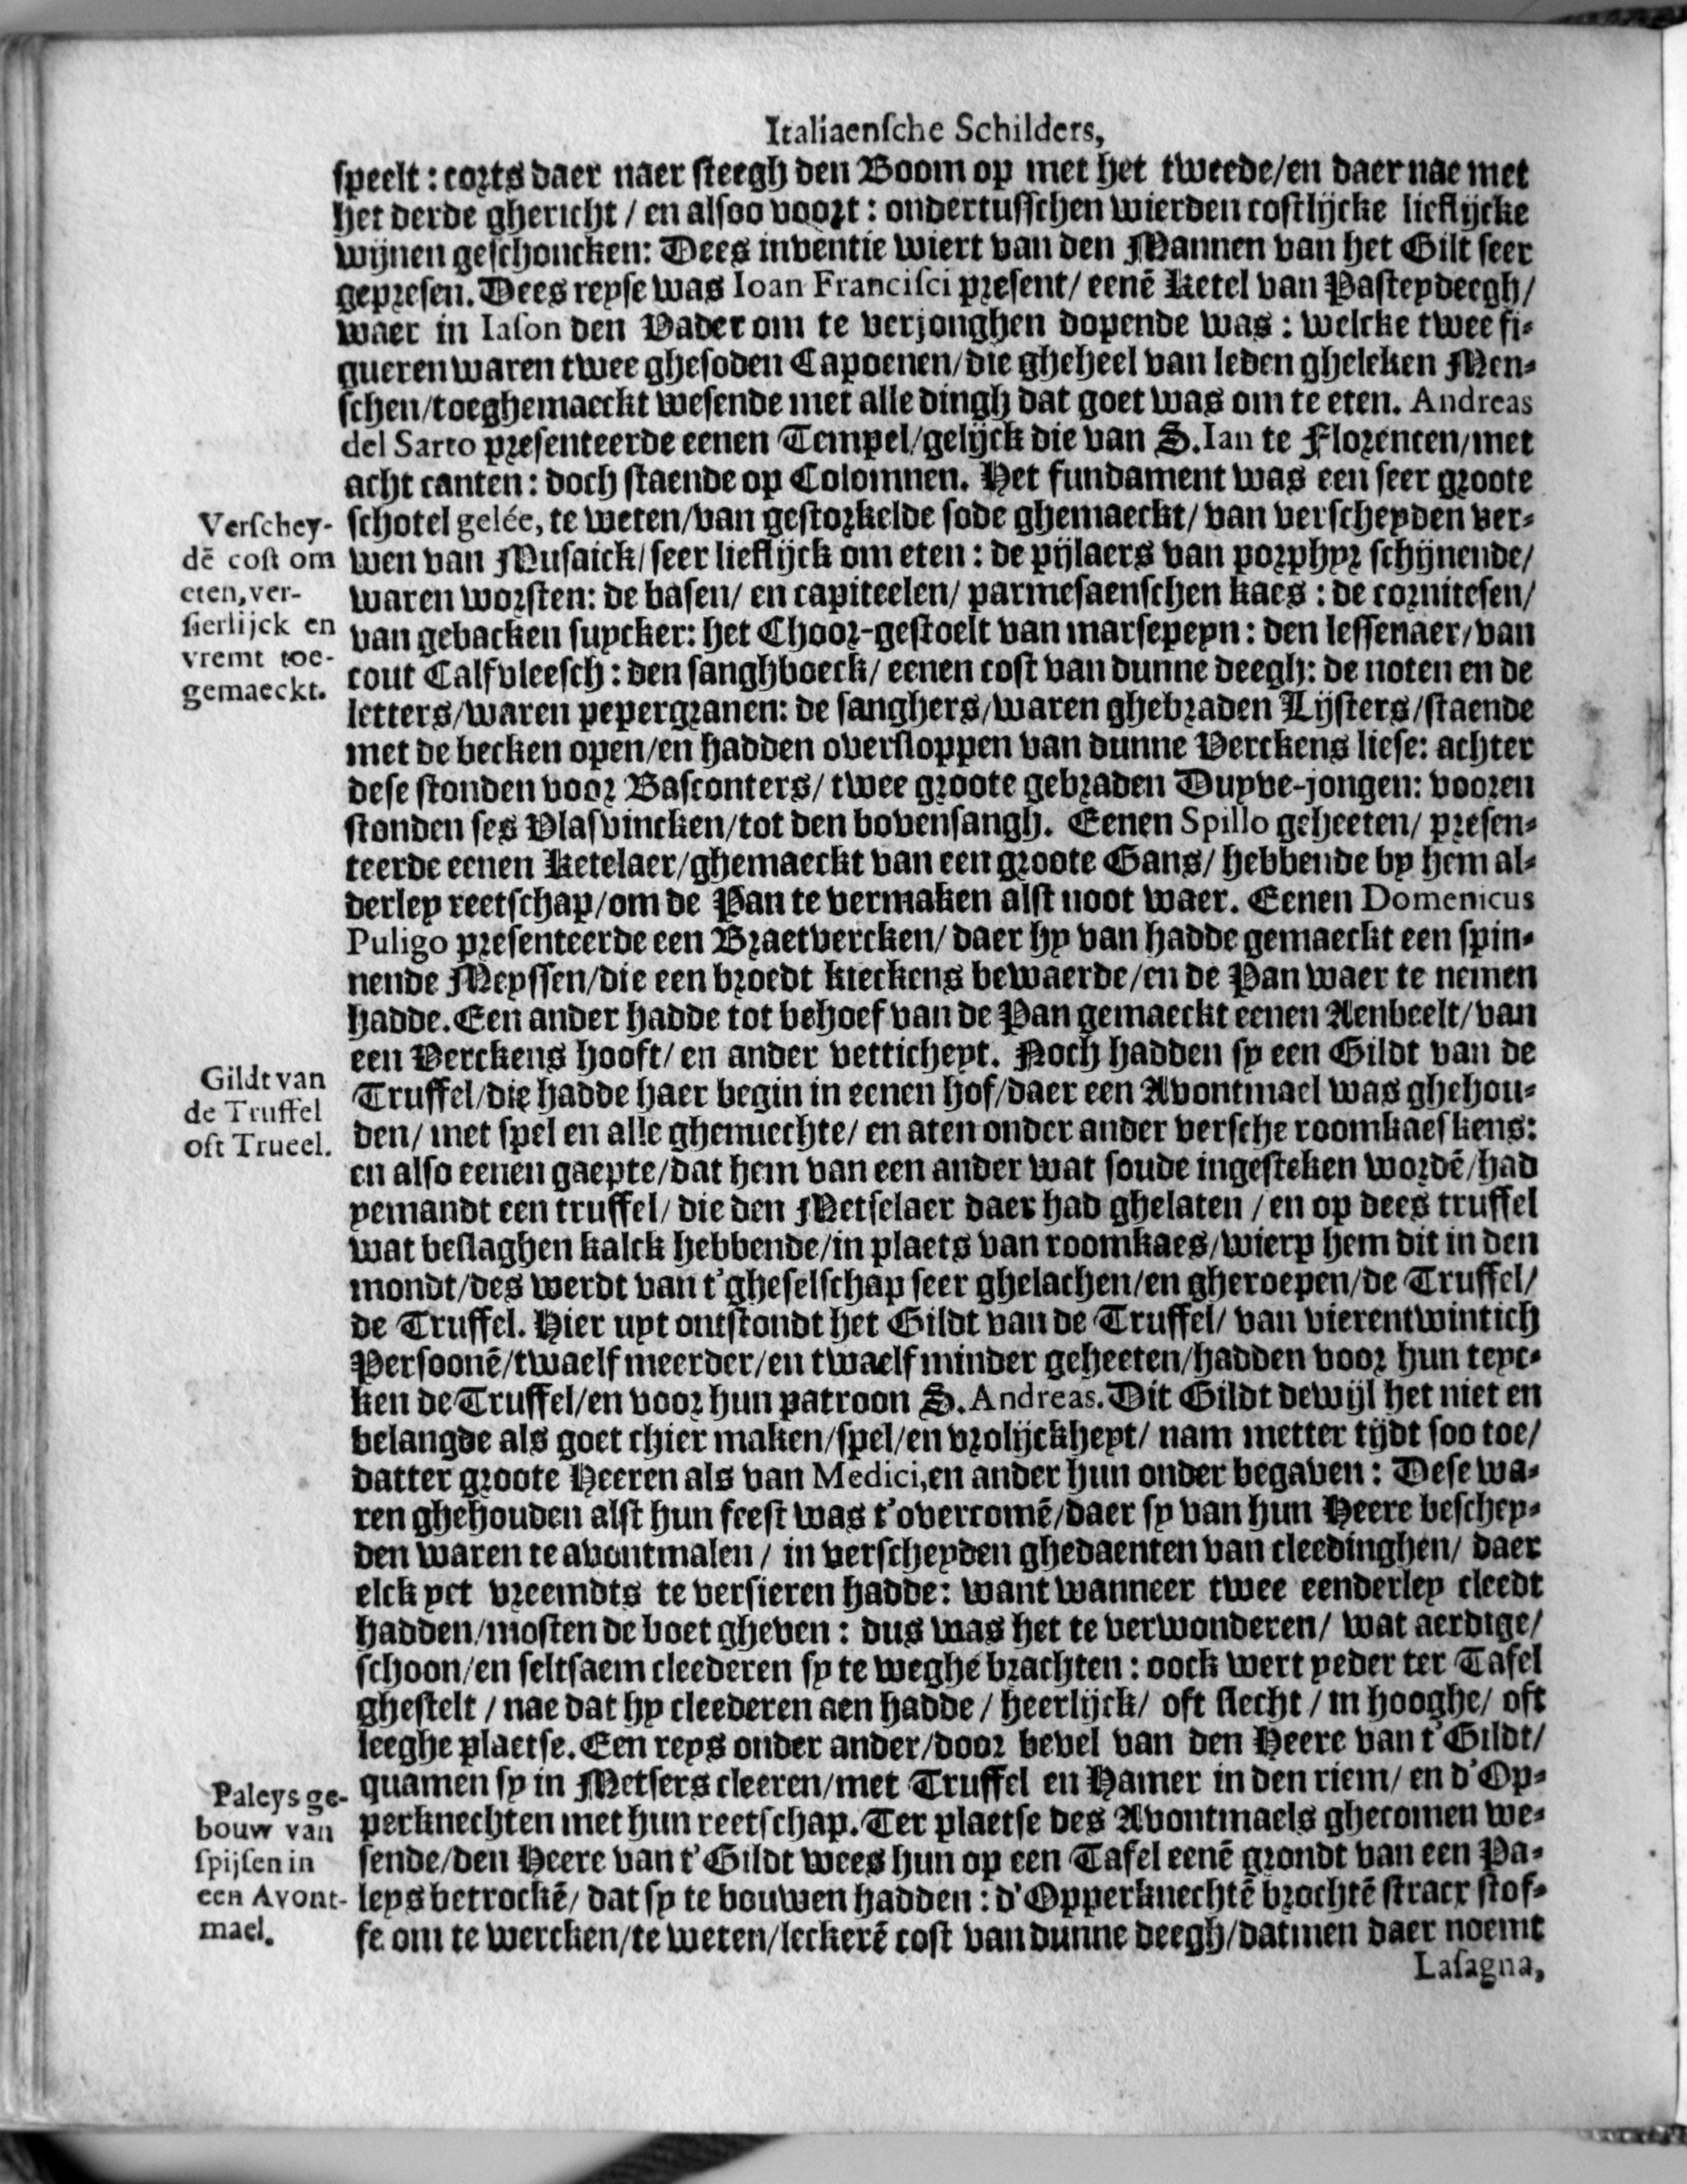 Italiaensche Schilders,
speelt: corts daer naer steegh den Boom op met het tweede/en daer nae met
het derde ghericht / en alsoo voort: ondertusschen wierden costlijcke lieflijcke
wijnen geschoncken: Dees inventie wiert van den Mannen van het Gilt seer
gepresen. Dees reyse was Ioan Francisci present/ eenē Ketel van Pasteydeegh/
waer in Iason den Vader om te verjonghen dopende was: welcke twee fi-
gueren waren twee ghesoden Capoenen/die gheheel van leden gheleken Men-
schen/toeghemaeckt wesende met alle dingh dat goet was om te eten. Andreas
del Sarto presenteerde eenen Tempel/gelijck die van S. Ian te Florencen/met
acht canten: doch staende op Colomnen. Het fundament was een seer groote
schotel gelée, te weten/van gestorkelde sode ghemaeckt/ van verscheyden ver-
wen van Musaick/ seer lieflijck om eten: de pijlaers van porphyr schijnende/
waren worsten: de basen/ en capiteelen/ parmesaenschen kaes: de cornicesen/
van gebacken suycker: het Choor-gestoelt van marsepeyn: den lessenaer/van
cout Calfvleesch: den sanghboeck/ eenen cost van dunne deegh: de noten en de
letters/waren pepergranen: de sanghers/waren ghebraden Lijsters/staende
met de becken open/en hadden oversloppen van dunne Verckens liese: achter
dese stonden voor Basconters/ twee groote gebraden Duyve-jongen: vooren
stonden ses Vlasvincken/tot den bovensangh. Eenen Spillo geheeten/ presen-
teerde eenen Ketelaer/ghemaeckt van een groote Gans/ hebbende by hem al-
derley reetschap/om de Pan te vermaken alst noot waer. Eenen Domenicus
Puligo presenteerde een Braetvercken/ daer hy van hadde gemaeckt een spin-
nende Meyssen/die een broedt kieckens bewaerde/en de Pan waer te nemen
hadde. Een ander hadde tot behoef van de Pan gemaeckt eenen Aenbeelt/van
een Verckens hooft/ en ander vetticheyt. Noch hadden sy een Gildt van de
Truffel/die hadde haer begin in eenen hof/daer een Avontmael was ghehou-
den/ met spel en alle ghenuechte/ en aten onder ander versche roomkaeskens:
en also eenen gaepte/dat hem van een ander wat soude ingesteken wordē/had
yemandt een truffel/ die den Metselaer daer had ghelaten / en op dees truffel
wat beslaghen kalck hebbende/in plaets van roomkaes/wierp hem dit in den
mondt/des werdt van t'gheselschap seer ghelachen/en gheroepen/de Truffel/
de Truffel. Hier uyt ontstondt het Gildt van de Truffel/ van vierentwintich
Persoonē/twaelf meerder/en twaelf minder geheeten/hadden voor hun teyc-
ken de Truffel/en voor hun patroon S. Andreas. Dit Gildt dewijl het niet en
belangde als goet chier maken/spel/en vrolijckheyt/ nam metter tijdt soo toe/
datter groote Heeren als van Medici, en ander hun onder begaven: Dese wa-
ren ghehouden alst hun feest was t'overcomē/daer sy van hun Heere beschey-
den waren te avontmalen / in verscheyden ghedaenten van cleedinghen/ daer
elck yet vreemdts te versieren hadde: want wanneer twee eenderley cleedt
hadden/mosten de boet gheven: dus was het te verwonderen/ wat aerdige/
schoon/en seltsaem cleederen sy te weghe brachten: oock wert yeder ter Tafel
ghestelt / nae dat hy cleederen aen hadde / heerlijck/ oft slecht / in hooghe/ oft
leeghe plaetse. Een reys onder ander/door bevel van den Heere van t'Gildt/
quamen sy in Metsers cleeren/met Truffel en Hamer in den riem/ en d'Op-
perknechten met hun reetschap. Ter plaetse des Avontmaels ghecomen we-
sende/den Heere van t'Gildt wees hun op een Tafel eenē grondt van een Pa-
leys betrockē/ dat sy te bouwen hadden: d'Opperknechtē brochtē stracx stof-
fe om te wercken/te weten/leckerē cost van dunne deegh/datmen daer noemt
Lasagna,
Verschey-
dē cost om
eten, ver-
sierlijck en
vremt toe-
gemaeckt.
Gildt van
de Truffel
oft Trueel.
Paleys ge-
bouw van
spijsen in
een Avont-
mael.